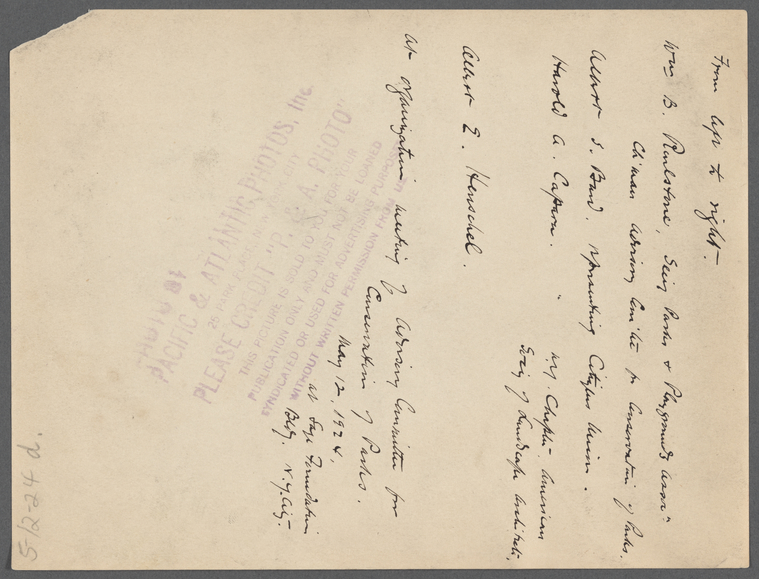 From left to right—
Wm B. Roulstone, Secy Parks & Playgrounds Assn:
Ch'man Advisory Com'tee for Conservation of Parks.
Albert S. Bard, representing Citizens Union.
Harold A. Caparn. " N.Y. Chapter American
Society of Landscape Architects.
Albert E. Henschel.
At organization meeting of Advisory Committee for
Conservation of Parks.
May 12, 1924,
at Sage Foundation
Bldg. N.Y. City—
PHOTO BY
PACIFIC & ATLANTIC PHOTOS, Inc.
25 PARK NEW YORK CITY
PLEASE CREDIT "P. & A. PHOTO"
THIS PICTURE IS SOLD TO YOU FOR YOUR
PUBLICATION ONLY AND MUST NOT BE LOANED
SYNDICATED OR USED FOR ADVERTISING PURPOSES
WITHOUT WRITTEN PERMISSION FROM US
5-12-24 d.